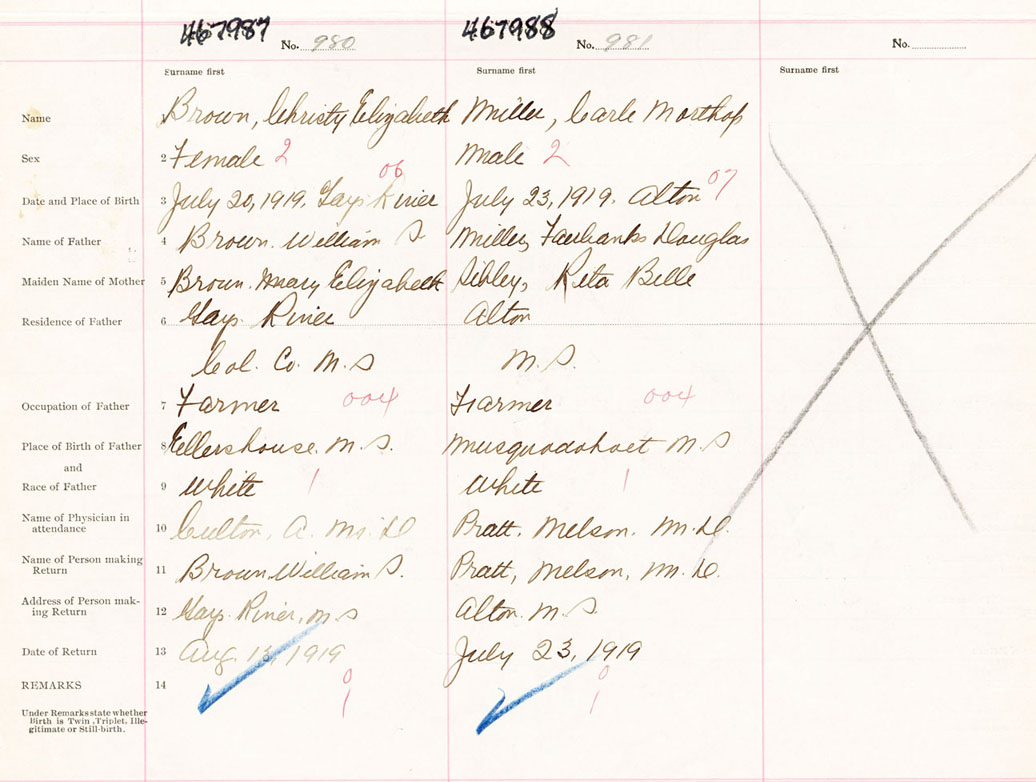 467987 No. 980 467988 No. 981 No.
Surname first Surname first Surname first
Name Brown, Christy Elizabeth Miller, Carle Northop
Sex 2 Female 2 Male 2
06 07
Date and Place of Birth 3 July 20, 1919. Gays River July 23, 1919. Alton
Name of Father 4 Brown. William S Miller, Fairbanks Douglas
Maiden Name of Mother 5 Brown. Mary Elizabeth Sibley, Reta Belle
Residence of Father 6 Gays River Alton
Col. Co. N. S N. S.
Occupation of Father 7 Farmer 004 Farmer 004
Place of Birth of Father 8 Ellershouse. N. S. Musquodoboit N. S
and
Race of Father 9 White 1 White 1
Name of Physician in
attendance 10 A. M. D Pratt, Nelson. M. D.
Name of Person making
Return 11 Brown William S. Pratt, Nelson, M. D.
Address of Person mak-
ing Return 12 Gays River, N S Alton. N. S.
Date of Return 13 Aug. 13, 1919 July 23, 1919
REMARKS 14 0 0
1 1
Under Remarks state whether
Birth is Twin, Triplet, Ille-
gitimate or Still-birth.